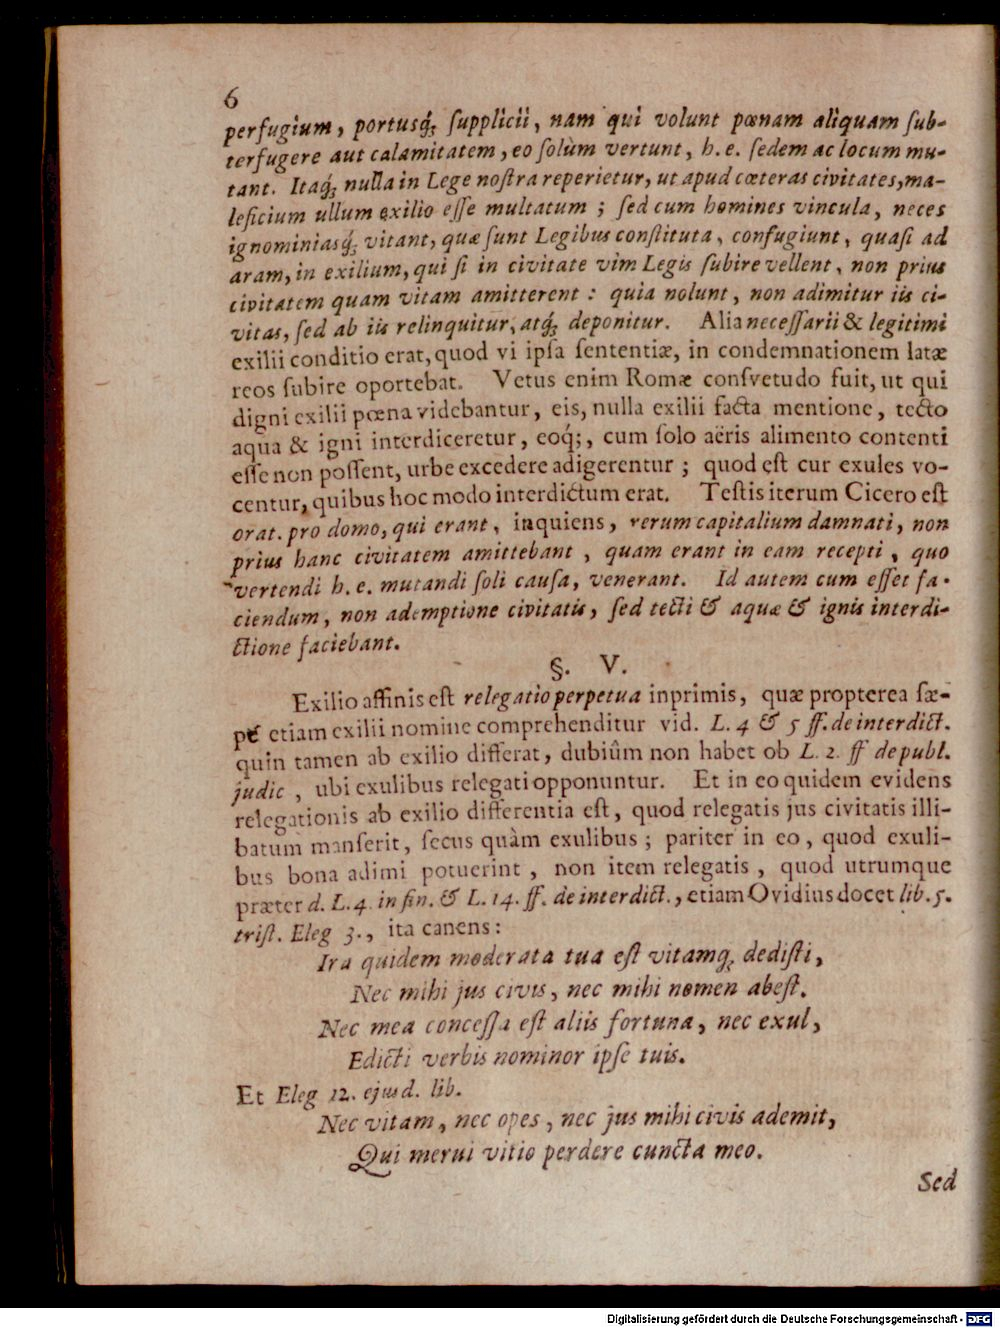 6
perfugium, portusq́; ſupplicii, nam qui volunt pœnam aliquam ſub-
terfugere aut calamitatem, eo ſolùm vertunt, h. e. ſedem ac locum mu-
tant. Itaq́; nulla in Lege noſtra reperietur, ut apud cœteras civitates, ma-
leficium ullum exilio eſſe multatum; ſed cum homines vincula, neces
ignominiasq́; vitant, quæ ſunt Legibus conſtituta, confugiunt, quaſi ad
aram, in exilium, qui ſi in civitate vim Legis ſubire vellent, non prius
civitatem quam vitam amitterent: quia nolunt, non adimitur iis ci-
vitas, ſed ab iis relinquitur, atq́; deponitur. Alia neceſſarii & legitimi
exilii conditio erat, quod vi ipſa ſententiæ, in condemnationem latæ
reos ſubire oportebat. Vetus enim Romæ conſvetudo fuit, ut qui
digni exilii pœna videbantur, eis, nulla exilii facta mentione, tecto
aqua & igni interdiceretur, eoq́;, cum ſolo aëris alimento contenti
eſſe non poſſent, urbe excedere adigerentur; quod eſt cur exules vo-
centur, quibus hoc modo interdictum erat. Teſtis iterum Cicero eſt
orat. pro domo, qui erant, inquiens, rerum capitalium damnati, non
prius hanc civitatem amittebant, quam erant in eam recepti, quo
vertendi h. e. mutandi ſoli cauſa, venerant. Id autem cum eſſet fa-
ciendum, non ademptione civitatis, ſed tecti & aquæ & ignis interdi-
ctione faciebant.
§. V.
Exilio affinis eſt relegatio perpetua inprimis, quæ propterea ſæ-
pè etiam exilii nomine comprehenditur vid. L. 4 & 5 ff. de interdict.
quin tamen ab exilio differat, dubiûm non habet ob L. 2. ff de publ.
judic, ubi exulibus relegati opponuntur. Et in eo quidem evidens
relegationis ab exilio differentia eſt, quod relegatis jus civitatis illi-
batum manſerit, ſecus quàm exulibus; pariter in eo, quod exuli-
bus bona adimi potuerint, non item relegatis, quod utrumque
præter d. L. 4. in fin. & L. 14. ff. de interdict., etiam Ovidius docet lib. 5.
triſt. Eleg 3., ita canens:
Ira quidem moderata tua eſt vitamq́; dediſti,
Nec mihi jus civis, nec mihi nomen abeſt.
Nec mea conceſſa eſt aliis fortuna, nec exul,
Edicti verbis nominor ipſe tuis.
Et Eleg 12. ejusd. lib.
Nec vitam, nec opes, nec jus mihi civis ademit,
Qui merui vitio perdere cuncta meo.
Sed
Digitalisierung gefördert durch die Deutsche Forschungsgemeinschaft - DFG